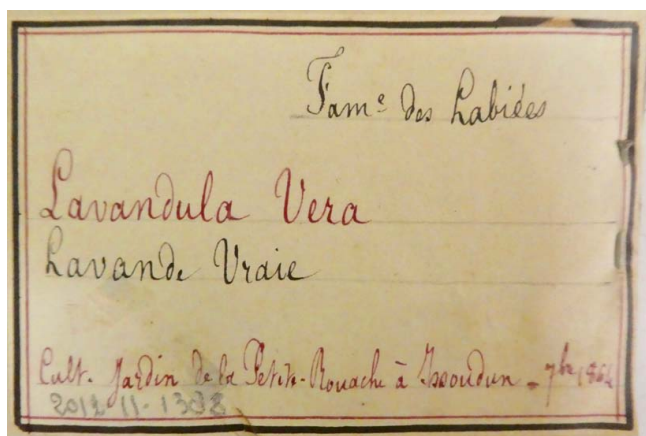 Fam.e des Labiées
Lavandula Vera
Lavande Vraie
Cult. Jardin de la Petite-Rouache à Issoudun - 7bre 1864
2012-11-1388